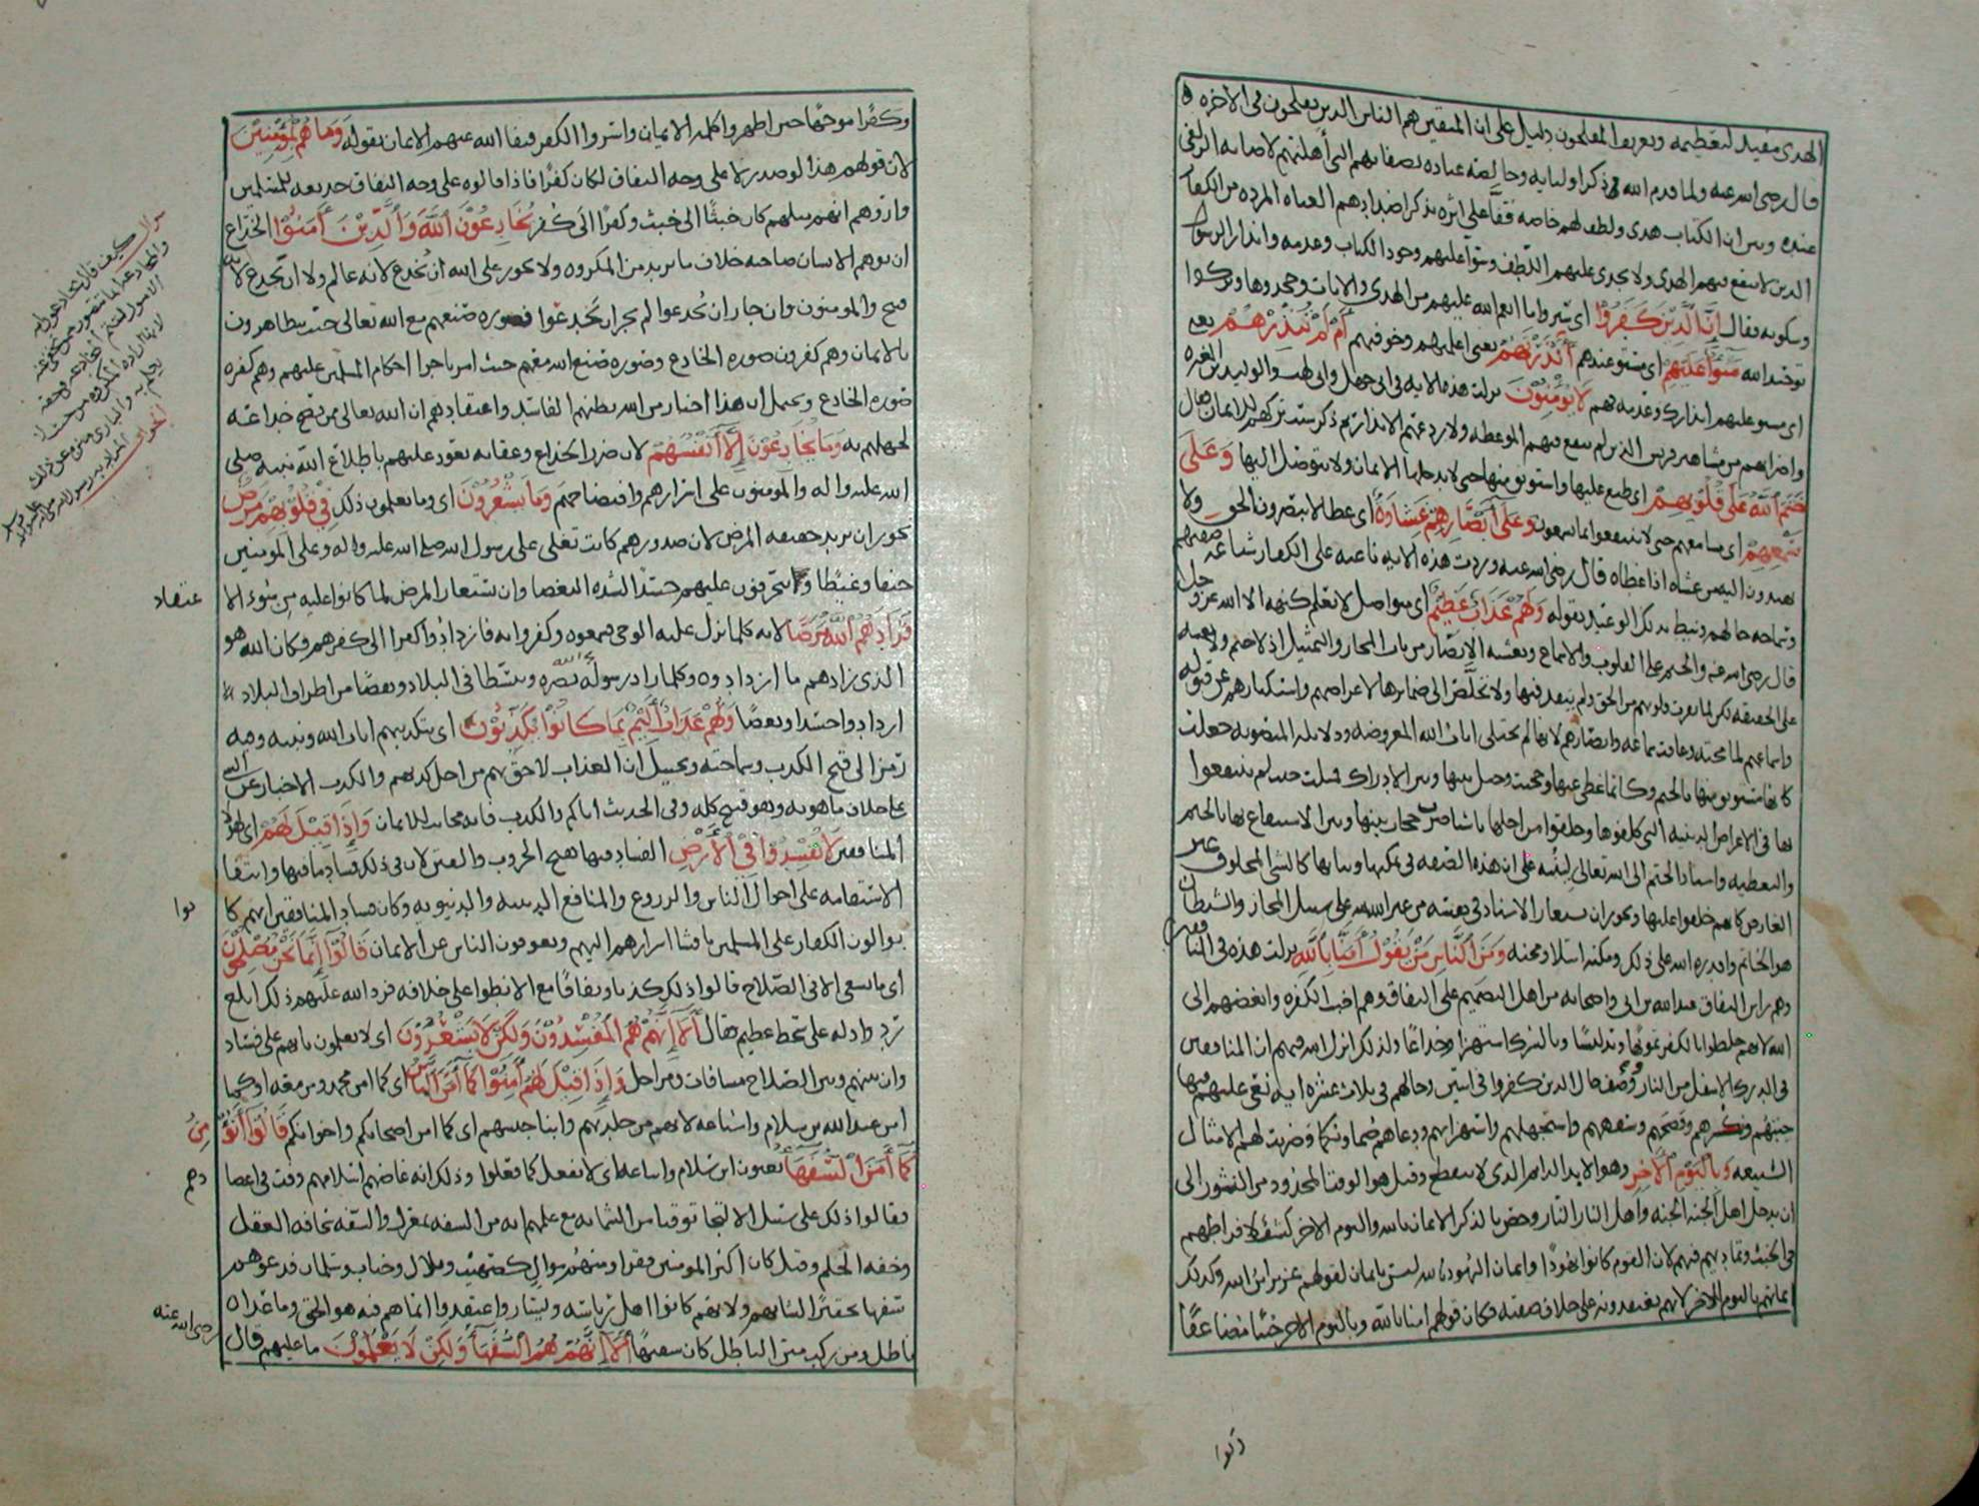 الهدى مفيد لتعظيمه وتعريف المفلحون دليل على ان المتقين هم الناس الذين يفلحون فى الآخره
قال رضى الله عنه ولما قدم الله ذكر اوليايه وخالصة عباده بصفاتهم التى أهلتهم لاصابه الزلفى
عنده وبين ان الكتاب هدى ولطف لهم خاصه قفا على اثره بذكر اضدادهم العتاه المرده من الكفار
الذين لا ينفع فيهم الهدى ولا يجدى عليهم اللطف وسوآ عليهم وجود الكتاب وعدمه وانذار الرسول
وسكوته فقال إِنَّ الَّذِيْنَ كَفَرُوْا اى ستروا ما انعم الله عليهم من الهدى والايات وجحدوها وتركوا
توحيد الله سَوَآءٌ عَلَيْهِمْ اى مستو عندهم ءَأَنْذَرْتَهُمْ يعنى اعلمتهم وخوفتهم أَمْ لَمْ تُنْذِرْهُمْ يعنى
اى مستو عليهم انذارك وعدمه فهم لَا يُؤْمِنُوْنَ نزلت هذه الايه فى ابى جهل وابى لهب والوليد بن المغيره
واضرابهم من مشاهير قريش الذين لم ينفع فيهم الموعظه ولا ردعهم الانذار ثم ذكر سبب تركهم للايمان فقال
خَتَمَ اللَّهُ عَلَى قُلُوْبِهِمْ اى طبع عليها واستوثق منها حتى لا يدخلها الايمان ولا يتوصل اليها وَعَلَى
سَمْعِهِمْ اى مسامعهم حتى لا ينتفعوا بما يسمعون وَعَلَى أَبْصَارِهِمْ غِشَاوَةٌ اى غطا لا يبصرون الحق ولا
يهتدون اليه من غشاه اذا غطاه قال رضى الله عنه وردت هذه الايه ناعيه على الكفار شناعه صفتهم
وسماجه حالهم ونيط بذلك الوعيد بقوله وَلَهُمْ عَذَابٌ عَظِيْمٌ اى متواصل لا يعلم كنهه الا الله عز وجل
قال رضى الله عنه والختم على القلوب والاسماع وتغشيه الابصار من باب المجاز والتمثيل اذ لا ختم ولا تغشيه
على الحقيقه لكن لما نفرت قلوبهم من الحق ولم ينفذ فيها ولا تخلص الى ضمايرها لاعراضهم واستكبارهم عن قبوله
واسماعهم لما مجته وعافت سماعه وابصارهم لانها لم تجتلى ايات الله المعروضه ودلايله المنصوبه جعلت
كانها مستوثق منها بالختم وكانما غطى عليها وحجبت وحيل بينها وبين الادراك مثلت حيث لم ينتفعوا
بها فى الاغراض الدينيه التى كلفوها وخلقوا من اجلها باشيا ضرب حجاب بينها وبين الاستنفاع بها بالختم
والتغطيه واسناد الختم الى الله تعالى لينبه على ان هذه الصفه فى تمكنها وثباتها كالشى المخلوق غير
العارض كانهم خلقوا عليها ويجوز ان يستعار الاسناد فى نفسه من غير الله لله على سبيل المجاز والشيطان
هو الخاتم واقدره الله على ذلك ومكنه ابتلا ومحنه وَمِنَ النَّاسِ مَنْ يَقُوْلُ أَمَنَّا بِاللَّهِ نزلت هذه فى المنافقين
وهم راس النفاق عبد الله بن ابى واصحابه من اهل التصميم على النفاق وهم اخبث الكفره وابغضهم الى
الله لانهم خلطوا بالكفر تمويها وتدليسًا وبالشرك استهزا وخداعًا ولذلك انزل الله فيهم ان المنافقين
فى الدرك الاسفل من النار ووصف حال الذين كفروا فى آيتين وحالهم فى ثلاث عشره ايه نعى عليهم فيها
خبثهم ونكرهم وفضحهم وسفههم واستجهلهم واستهزا بهم ودعاهم صما وبكما وضربت لهم الامثال
الشنيعه وَبِالْيَوْمِ الْآخِرِ وهو الابد الدايم الذى لا ينقطع وقيل هو الوقت المحدود من النشور الى
ان يدخل اهل الجنه الجنه واهل النار النار وخص بالذكر الايمان بالله واليوم الاخر كشفًا لافراطهم
فى الخبث وتماديهم فيهم لان القوم كانوا يهودًا وايمان اليهود بالله ليس بايمان لقولهم عزير ابن الله وكذلك
ايمانهم باليوم الآخر لانهم يعتقدونه على خلاف صفته فكان قولهم امنا بالله وباليوم الاخر خبثا مضاعفًا
وكفرًا موجها حين اظهروا كلمه الايمان واسروا الكفر فنفا الله عنهم الايمان بقوله وَمَا هُمْ بِمُؤْمِنِيْنَ
لان قولهم هذا لو صدر لا على وجه النفاق لكان كفرًا فاذا قالوه على وجه النفاق خديعه للمسلمين
واروهم انهم مثلهم كان خبثًا الى خبث وكفرًا الى كفر يُخَادِعُوْنَ اللَّهَ وَالَّذِيْنَ أَمَنُوْا الخداع
ان يوهم الانسان صاحبه خلاف ما يريد من المكروه ولا يجوز على الله ان يُخدع لانه عالم ولا ان يخدع لانه
قبيح والمومنون وان جاز ان يُخدعوا لم يجز ان يَخدعوا فصوره صنعهم مع الله تعالى حيث يتظاهرون
بالايمان وهم كفرون صوره الخادع وصوره صنع الله معهم حيث امر باجرا احكام المسلمين عليهم وهم كفره
صوره الخادع ويحتمل ان هذا اخبار من الله بظنهم الفاسد واعتقادهم ان الله تعالى ممن يصح خداعه
لجهلهم به وَمَا يُخَادِعُوْنَ إِلَّا أَنْفُسَهُمْ لان ضرر الخداع وعقابه يعود عليهم باطلاع الله نبيه صلى
الله عليه واله والمومنون على اسرارهم وافتضاحهم وَمَا يَشْعُرُوْنَ اى وما يعلمون ذلك فِيْ قُلُوْبِهِمْ مَرَضٌ
يجوز ان يريد حقيقه المرض لان صدورهم كانت تغلى على رسول الله صلى الله عليه واله وعلى المومنين
حنقا وغيظا ويتحرقون عليهم حسدًا لشده البغضا وان يستعار المرض لما كانوا عليه من سوء الا
عتقاد
فَزَادَهُمُ اللَّهُ مَرَضًا لانه كلما نزل عليه الوحى فسمعوه وكفروا به فازدادوا كفرا الى كفرهم فكان الله هو
الذى زادهم ما ازدادوه وكلما زاد رسوله نصره وتبسطا فى البلاد ونقصًا من اطراف البلاد
ازدادوا حسدا وبغضًا وَلَهُمْ عَذَابٌ أَلِيْمٌ بِمَا كَانُوْا يُكَذِّبُوْنَ اى بتكذيبهم ايات الله ونبيه وفيه
رمز الى قبح الكذب وسماجته وتخييل ان العذاب لاحق بهم من اجل كذبهم والكذب الاخبار عن الشى
على خلاف ما هو به وهو قبيح كله وفى الحديث اياكم والكذب فانه مجانب للايمان وَإِذَا قِيْلَ لَهُمْ اى لهولا
المنافقين لَا تُفْسِدُوْا فِيْ الْأَرْضِ الفساد فيها هيج الحروب والفتن لان فى ذلك فساد ما فيها وانتفا
الاستقامه على احوال الناس والزروع والمنافع الدينيه والدنيويه وكان فساد المنافقين انهم كا
نوا
يوالون الكفار على المسلمين بافشا اسرارهم اليهم ويعوقون الناس عن الايمان قَالُوْا إِنَّمَا نَحْنُ مُصْلِحُوْنَ
اى ما نسعى الا فى الصلاح قالوا ذلك كذبا ونفاقًا مع الانطوا على خلافه فرد الله عليهم ذلك ابلغ
رد وادله على سخط عظيم فقال أَلَا إِنَّهُمْ هُمُ الْمُفْسِدُوْنَ وَلَكِنْ لَا يَشْعُرُوْنَ اى لا يعلمون بانهم على فساد
وان بينهم وبين الصلاح مسافات ومراحل وَإِذَا قِيْلَ لَهُمْ أَمِنُوْا كَمَا أَمَنَ النَّاسُ اى كما امن محمد ومن معه او كما
امن عبد الله بن سلام واشياعه لانهم من جلدتهم وابنا جنسهم اى كما امن اصحابكم واخوانكم قَالُوْا أَنُؤْ
مِنُ
كَمَا أَمَنَ السُّفَهَآءُ يعنون ابن سلام واشياعه اى لا نفعل كما فعلوا وذلك انه غاضهم اسلامهم وفت فى اعضا
دهم
فقالوا ذلك على سبيل الالتجا توقيا من الشماته مع علمهم انه من السفه بمعزل والسفه سخافه العقل
وخفه الحلم وقيل كان اكثر المومنين فقرا ومنهم موال كصهيب وبلال وخباب وسلمان فدعوهم
سفها تحقيرًا لشانهم ولانهم كانوا اهل رياسه ويسار واعتقدوا ان ما هم فيه هو الحق وما عداه
باطل ومن ركب متن الباطل كان سفيهًا أَلَا إِنَّهُمْ هُمُ السُّفَهَآءُ وَلَكِنْ لَا يَعْلَمُوْنَ ما عليهم قال
رضى الله عنه